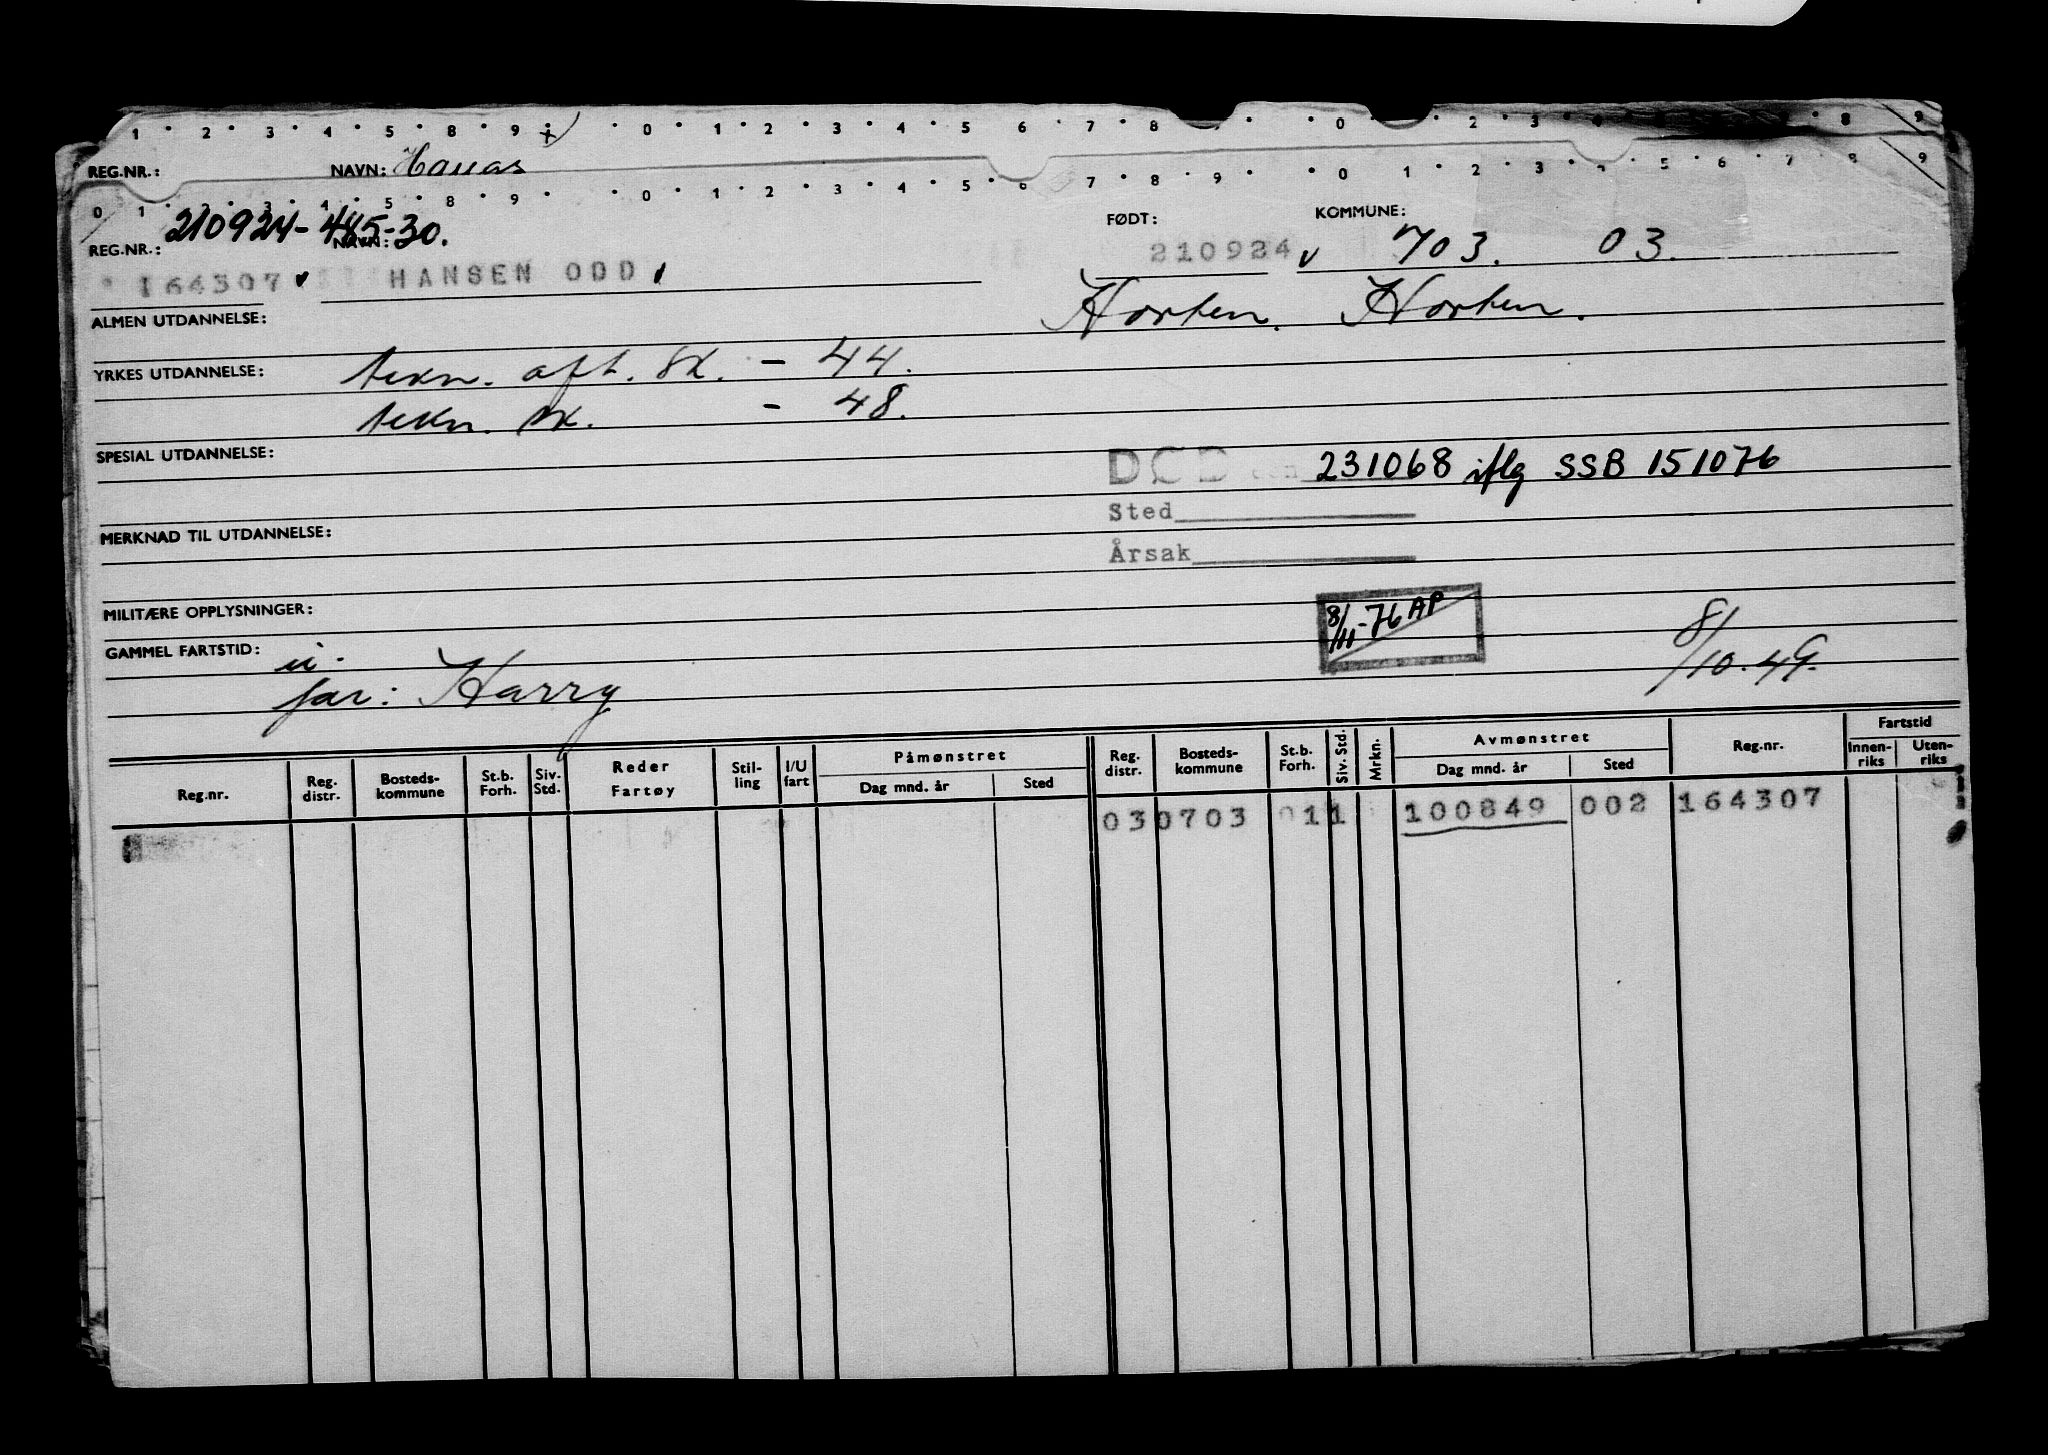 1 2 3 4 5 8 9 0 1 2 3 4 5 6 7 8 0 2 3 8 9
REG.NR.: NAVN: Hauas
1 2 3 4 5 6 7 8 9
0 1 2 3 4 5 8 9 0 1 2 3 4 5 6 7 8 9 0
REG.NR.: 210924-445-30. NAVN: FØDT: KOMMUNE:
164307 HANSEN ODD 210924 v 703. 03.
ALMEN UTDANNELSE: Horten. Horten.
YRKES UTDANNELSE: tekn. aft. sk. - 44.
tekn. sk. - 48.
SPESIAL UTDANNELSE: DØD den 231068 iflg SSB 151076
Sted
MERKNAD TIL UTDANNELSE: Årsak
MILITÆRE OPPLYSNINGER: 8/11-76 AP
GAMMEL FARTSTID: u. 8/10.49.
far: Harry
Reg.nr. Reg. distr. Bosteds-kommune St.b. Forh. Siv. Std. Reder Fartøy Stil-ling I/U fart Påmønstret Dag mnd. år Sted Reg. distr. Bosteds-kommune St.b. Forh. Siv. Std. Mrkn. Avmønstret Dag mnd. år Sted Reg.nr. Fartstid Innen-riks Uten-riks
03 0703 01 1 100849 002 164307